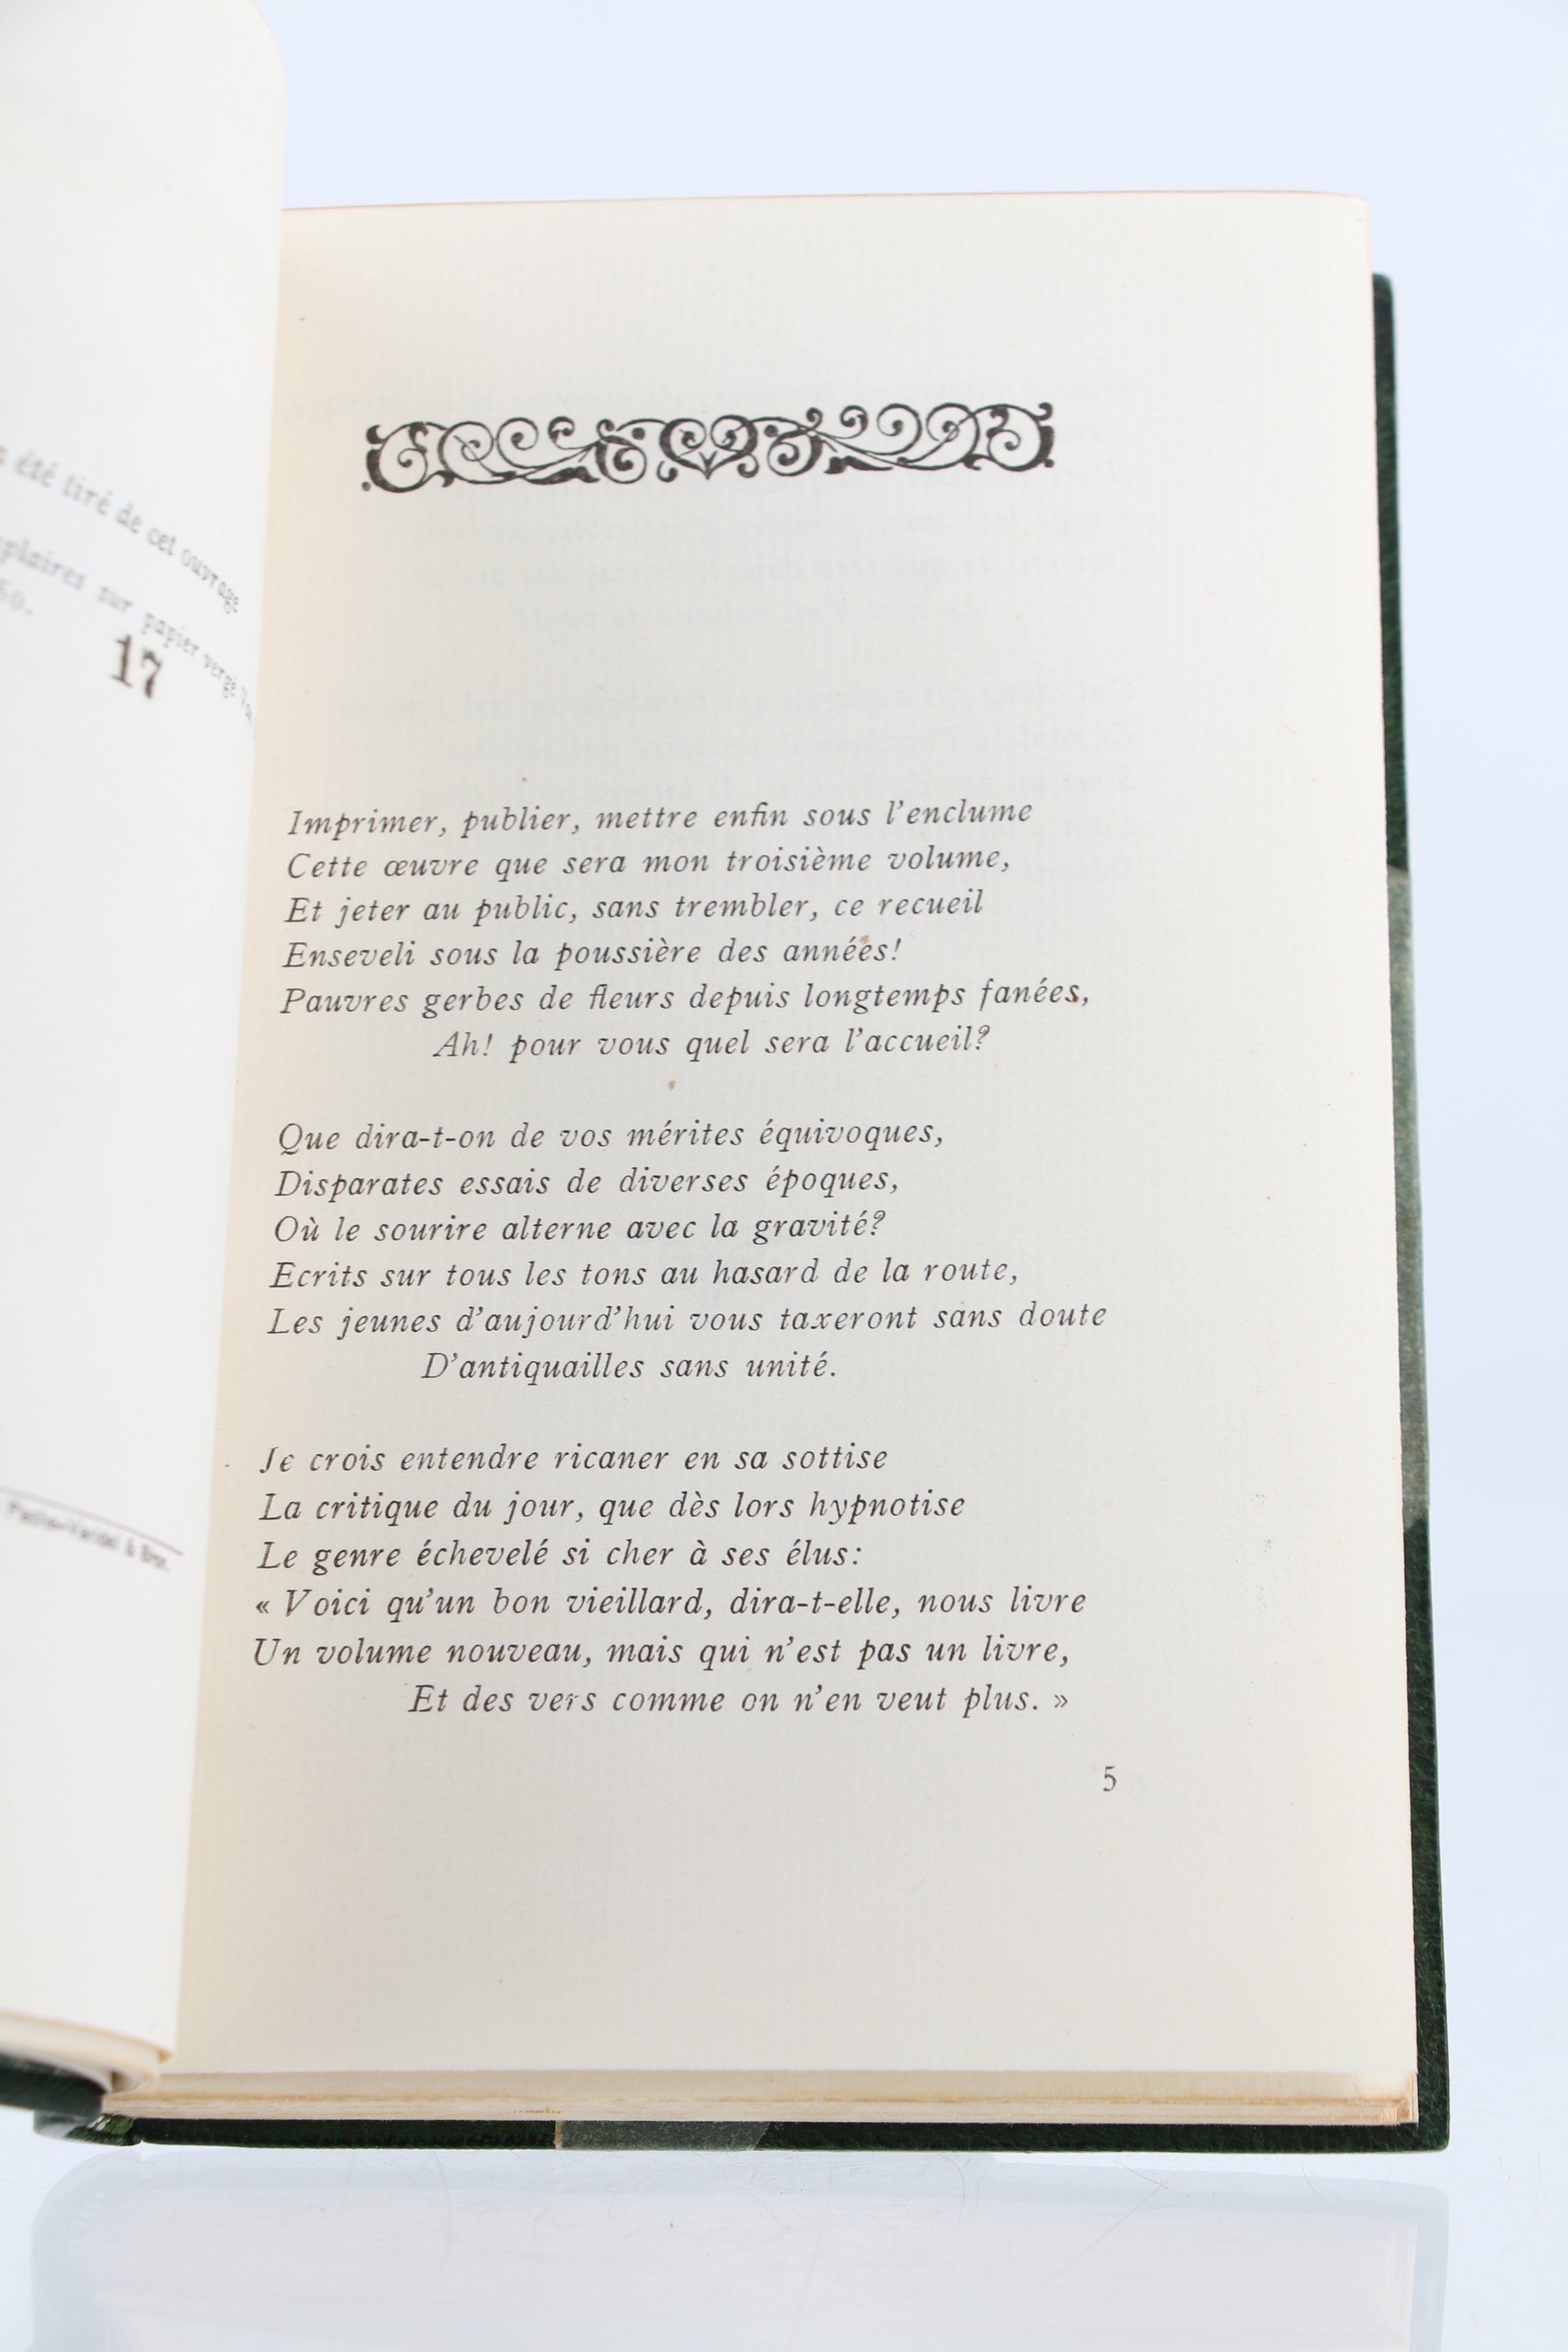 été tiré de cet ouvrage
sur papier vergé
50.
17
Imprimer, publier, mettre enfin sous l’enclume
Cette œuvre que sera mon troisième volume,
Et jeter au public, sans trembler, ce recueil
Enseveli sous la poussière des années!
Pauvres gerbes de fleurs depuis longtemps fanées,
Ah! pour vous quel sera l’accueil?
Que dira-t-on de vos mérites équivoques,
Disparates essais de diverses époques,
Où le sourire alterne avec la gravité?
Ecrits sur tous les tons au hasard de la route,
Les jeunes d’aujourd’hui vous taxeront sans doute
D’antiquailles sans unité.
Je crois entendre ricaner en sa sottise
La critique du jour, que dès lors hypnotise
Le genre échevelé si cher à ses élus:
« Voici qu’un bon vieillard, dira-t-elle, nous livre
Un volume nouveau, mais qui n’est pas un livre,
Et des vers comme on n’en veut plus. »
5